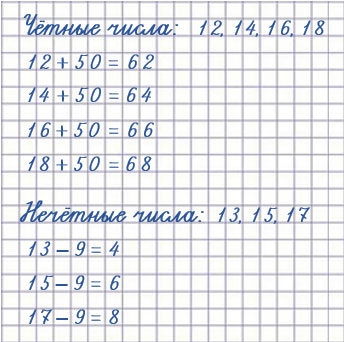 Чётные числа: 12, 14, 16, 18
12 + 50 = 62
14 + 50 = 64
16 + 50 = 66
18 + 50 = 68
Нечётные числа: 13, 15, 17
13 – 9 = 4
15 – 9 = 6
17 – 9 = 8